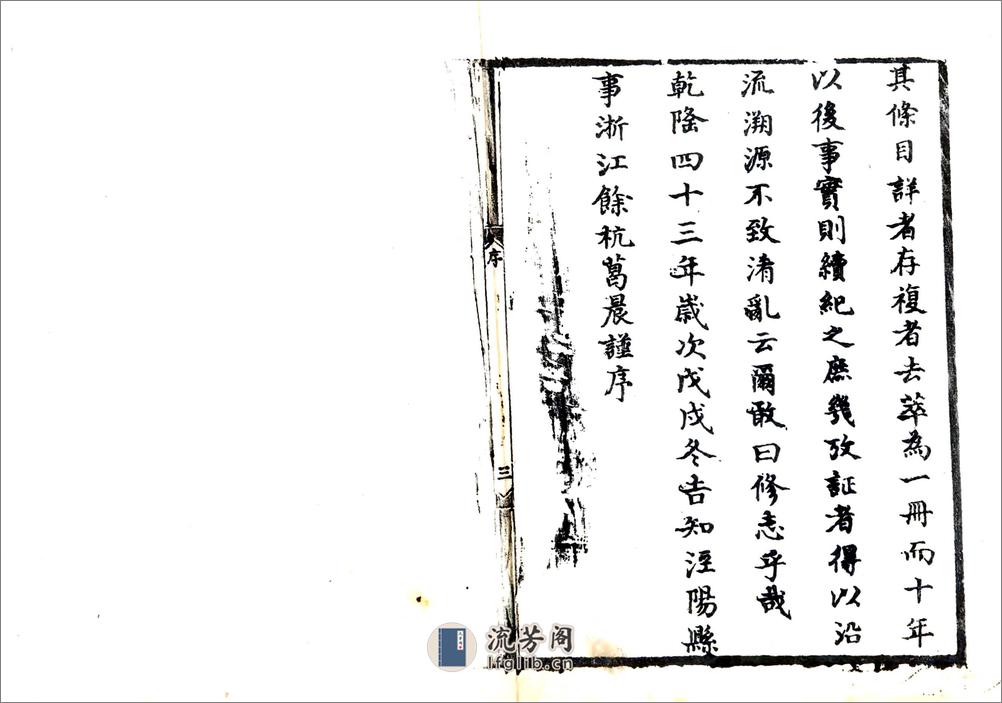 其條目詳者存複者去萃為一冊而十年
以後事實則續紀之庶幾攷証者得以沿
流溯源不致淆亂云爾敢曰修志乎哉
乾隆四十三年歲次戊戌冬吉知涇陽縣
事浙江餘杭葛晨謹序
序
三
流芳阁
lfglib.cn